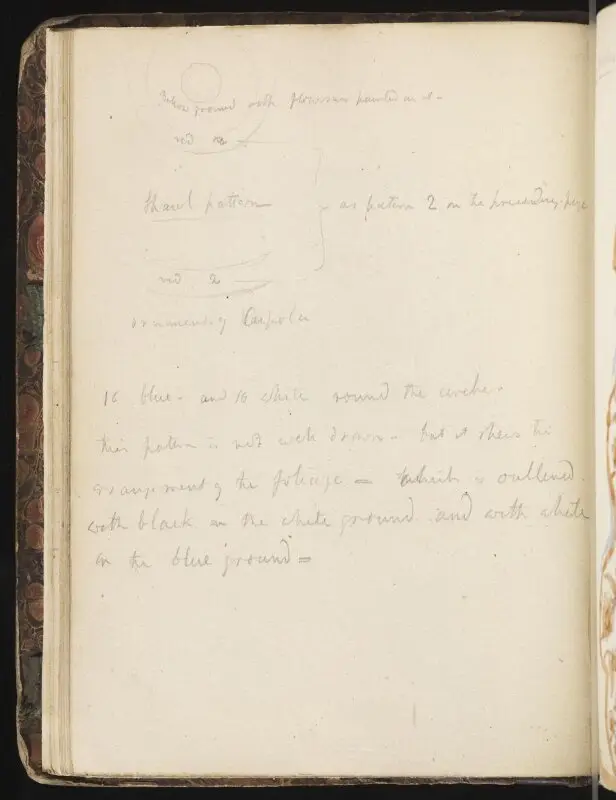 ground with flowers painted on it -
red 2 -
Shawl pattern - as pattern 2 on the preceding page
red 2 -
ornament of Cupola
16 blue - and 16 white round the circle -
this pattern is not well drawn - but it shews the
arrangement of the foliage = which is outlined
with black on the white ground and with white
on the blue ground =